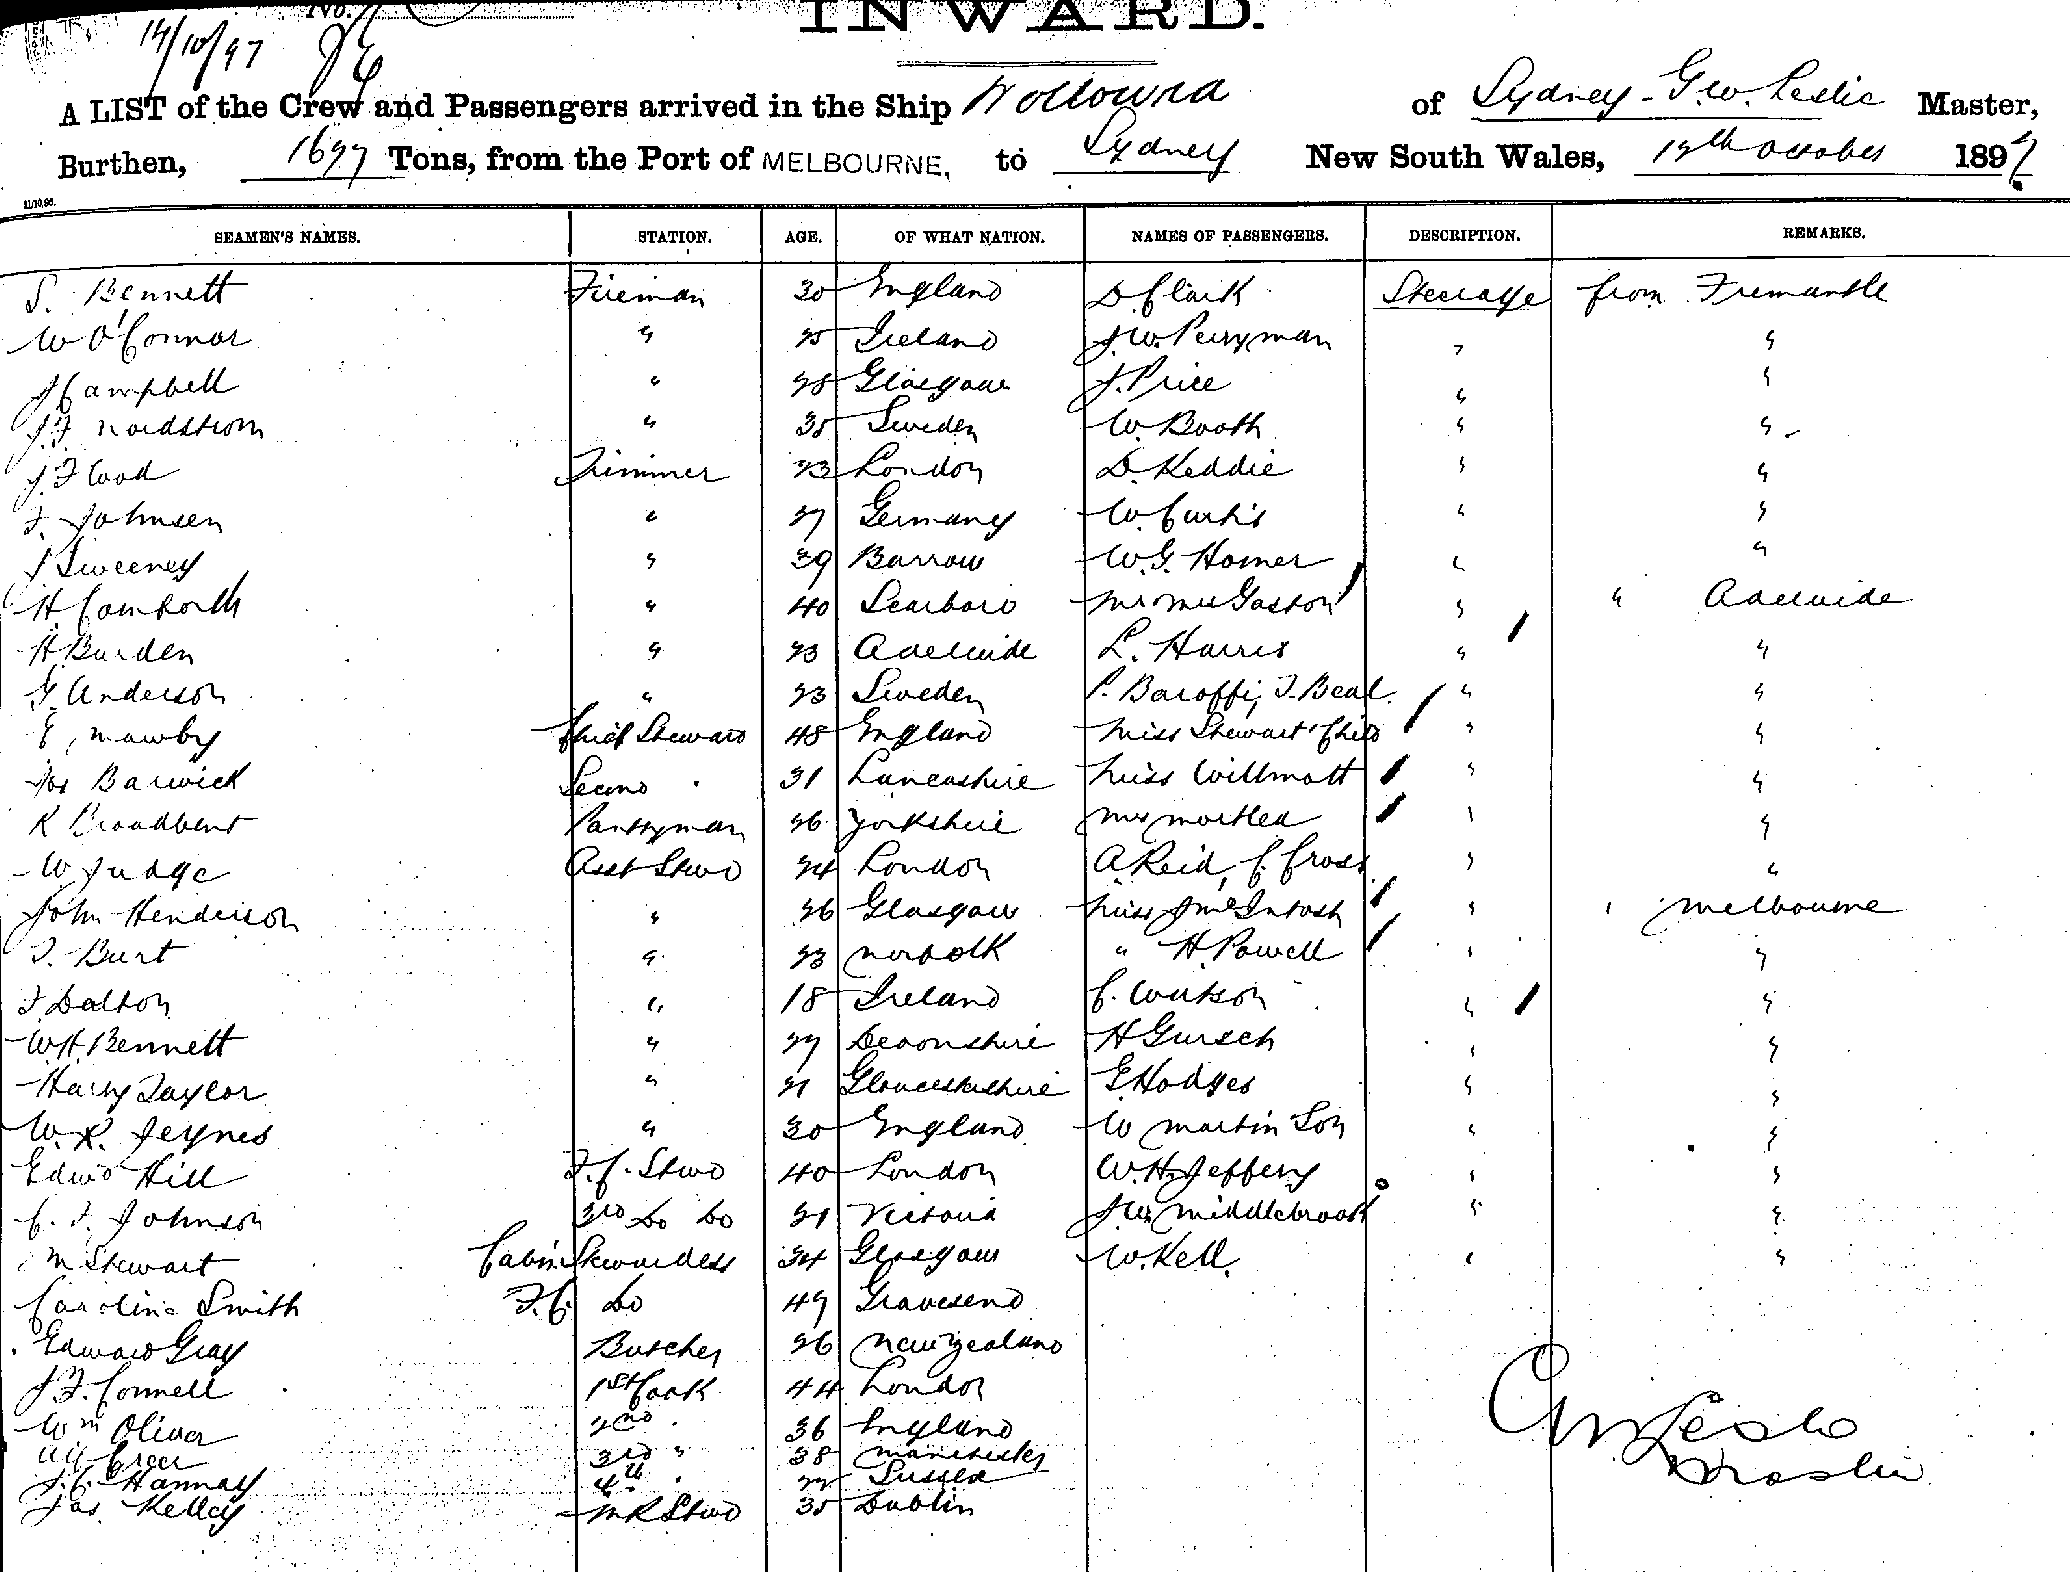 No.
14/10/97
INWARD.
A LIST of the Crew and Passengers arrived in the Ship Wollowra of Sydney - G.W. Leslie Master,
Burthen, Tons, from the Port of MELBOURNE, to Sydney New South Wales, October 1897
SEAMEN'S NAMES. STATION. AGE. OF WHAT NATION. NAMES OF PASSENGERS. DESCRIPTION. REMARKS.
S. Bennett Fireman 30 England D Clark Steerage from Fremantle
W O'Connor " 25 Ireland J.W. Perryman " "
J Campbell " 28 Glasgow J. Price " "
J.F. Nordstrom " 35 Sweden W. Booth " "
J. Flood Trimmer 23 London D. Keddie " "
F. Johnsen " 27 Germany W. Curtis " "
J Sweeney " 39 Barrow W.G. Homer " "
H. Comforth " 40 Scarboro Mr & Mrs Gaston " " Adelaide
H Burden " 23 Adelaide L. Harris " "
G. Anderson " 23 Sweden P. Baroffi, T. Beal " "
E. Mawby Chief Steward 48 England Miss Stewart & Child " "
Jos Barwick Second " 31 Lancashire Miss Willmott " "
R Broadbent Pantryman 26 Yorkshire Mrs " "
W Judge Asst Stwd 24 London A. Reid, C. Cross " "
John Henderson " 26 Glasgow Miss J McIntosh " " Melbourne
T. Burt " 23 Norfolk " H. Powell " "
F. Dalton " 18 Ireland C. Watson " "
W.H. Bennett " 27 Devonshire H Gursch " "
Harry Taylor " 21 Gloucestershire E Hodges " "
W. R. Jeynes " 30 England W Martin & Son " "
Edwd Hill F.C. Stwd 40 London W.H. Jeffery " "
C. F. Johnson 3rd Do Do 21 Victoria J W Middlebrook " "
M Stewart Cabin Stewardess 34 Glasgow W. Kell. " "
Caroline Smith F.C. Do 49 Gravesend
Edward Gray Butcher 26 New Zealand
J.F. Connell 1st Cook 44 London
Wm Oliver 2nd " 36 England
Alf Greer 3rd " 38 Manchester
J.C. Hannay 4th " Sussex
Jas. Kelley M R Stwd 35 Dublin
GW Leslie
Master